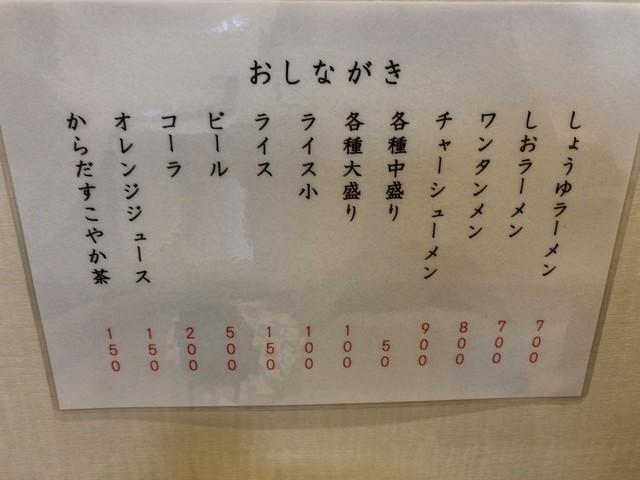 おしながき
しょうゆラーメン 700
しおラーメン 700
ワンタンメン 800
チャーシューメン 900
各種中盛り 50
各種大盛り 100
ライス小 100
ライス 150
ビール 500
コーラ 200
オレンジジュース 150
からだすこやか茶 150